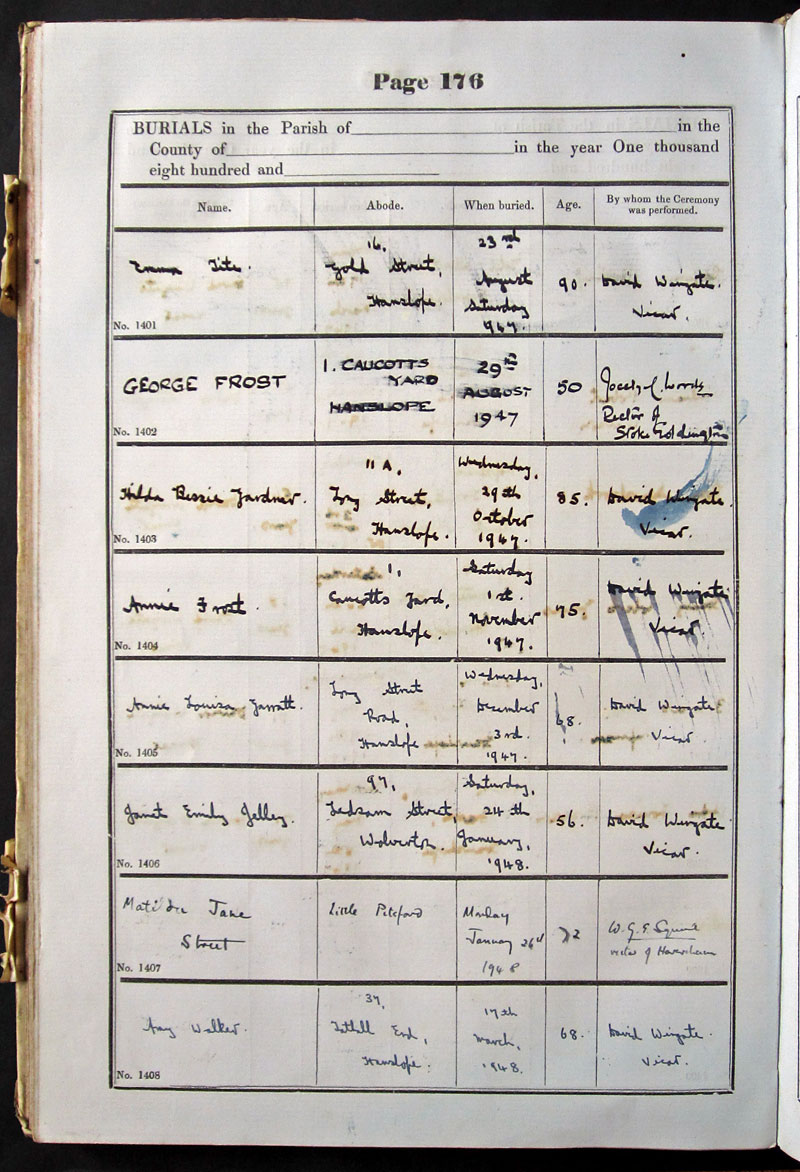 Page 176
BURIALS in the Parish of in the
County of in the year One thousand
eight hundred and
Name. Abode. When buried. Age. By whom the Ceremony
was performed.
Emma Tite.
No. 1401
16,
Gold Street,
Hanslope.
23rd
August
Saturday
1947
90.
David Wingate.
Vicar.
GEORGE FROST
No. 1402
1. CAUCOTTS
YARD
HANSLOPE
29th
AUGUST
1947
50
Rector of
Stoke Goldington
Hilda Bessie Gardner.
No. 1403
11A,
Long Street,
Hanslope.
Wednesday,
29th
October
1947.
85.
David Wingate.
Vicar.
Annie Frost.
No. 1404
1,
Caucotts Yard,
Hanslope.
Saturday
1st.
November
1947.
75.
David Wingate
Vicar.
Annie Louisa Garratt.
No. 1405
Long Street
Road,
Hanslope
Wednesday,
December
3rd.
1947.
68.
David Wingate
Vicar.
Janet Emily Jelley.
No. 1406
97,
Ledsam Street,
Wolverton.
Saturday,
24th
January,
1948.
56.
David Wingate
Vicar.
Matilda Jane
Street
No. 1407
Little
Monday
January 26th
1948
72
W.G.E. Squire
vicar of Haversham
Amy Walker.
No. 1408
37,
Tathall End,
Hanslope.
17th
March,
1948.
68.
David Wingate.
Vicar.